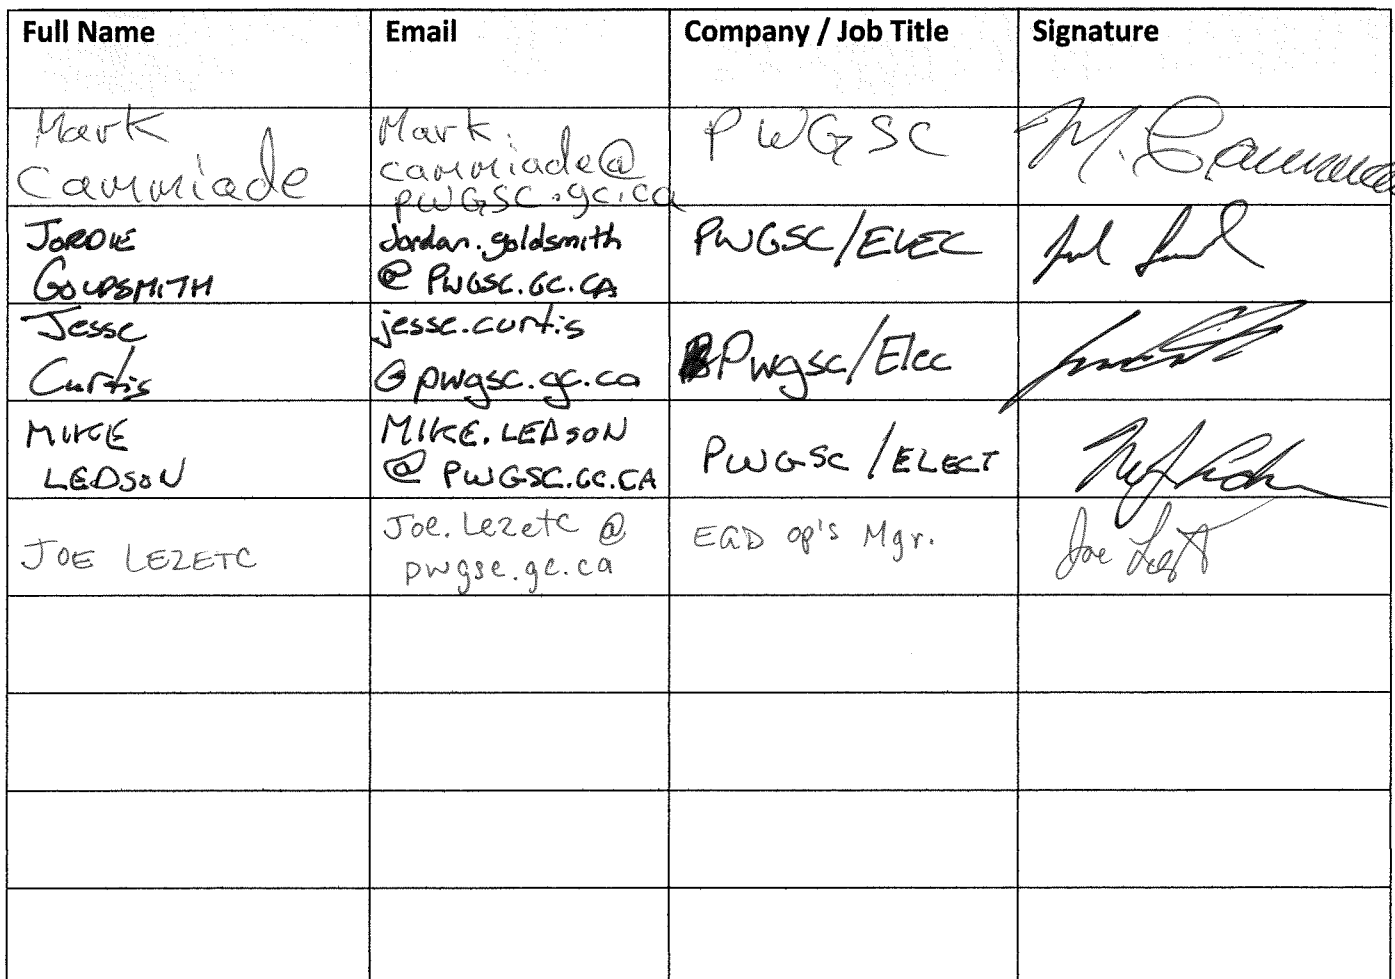 Full Name Email Company / Job Title Signature
Mark
Cammiade
Mark.
cammiade@
pwgsc.gc.ca
PWGSC
JORDIE
GOLDSMITH
Jordan.goldsmith
@ PWGSC.GC.CA
PWGSC/ELEC
Jesse
Curtis
jesse.curtis
@pwgsc.gc.ca
Pwgsc/Elec
MIKE
LEDSON
MIKE.LEDSON
@ PWGSC.GC.CA
PWGSC /ELECT
JOE LEZETC
Joe.Lezetc @
pwgsc.gc.ca
EGD op's Mgr.